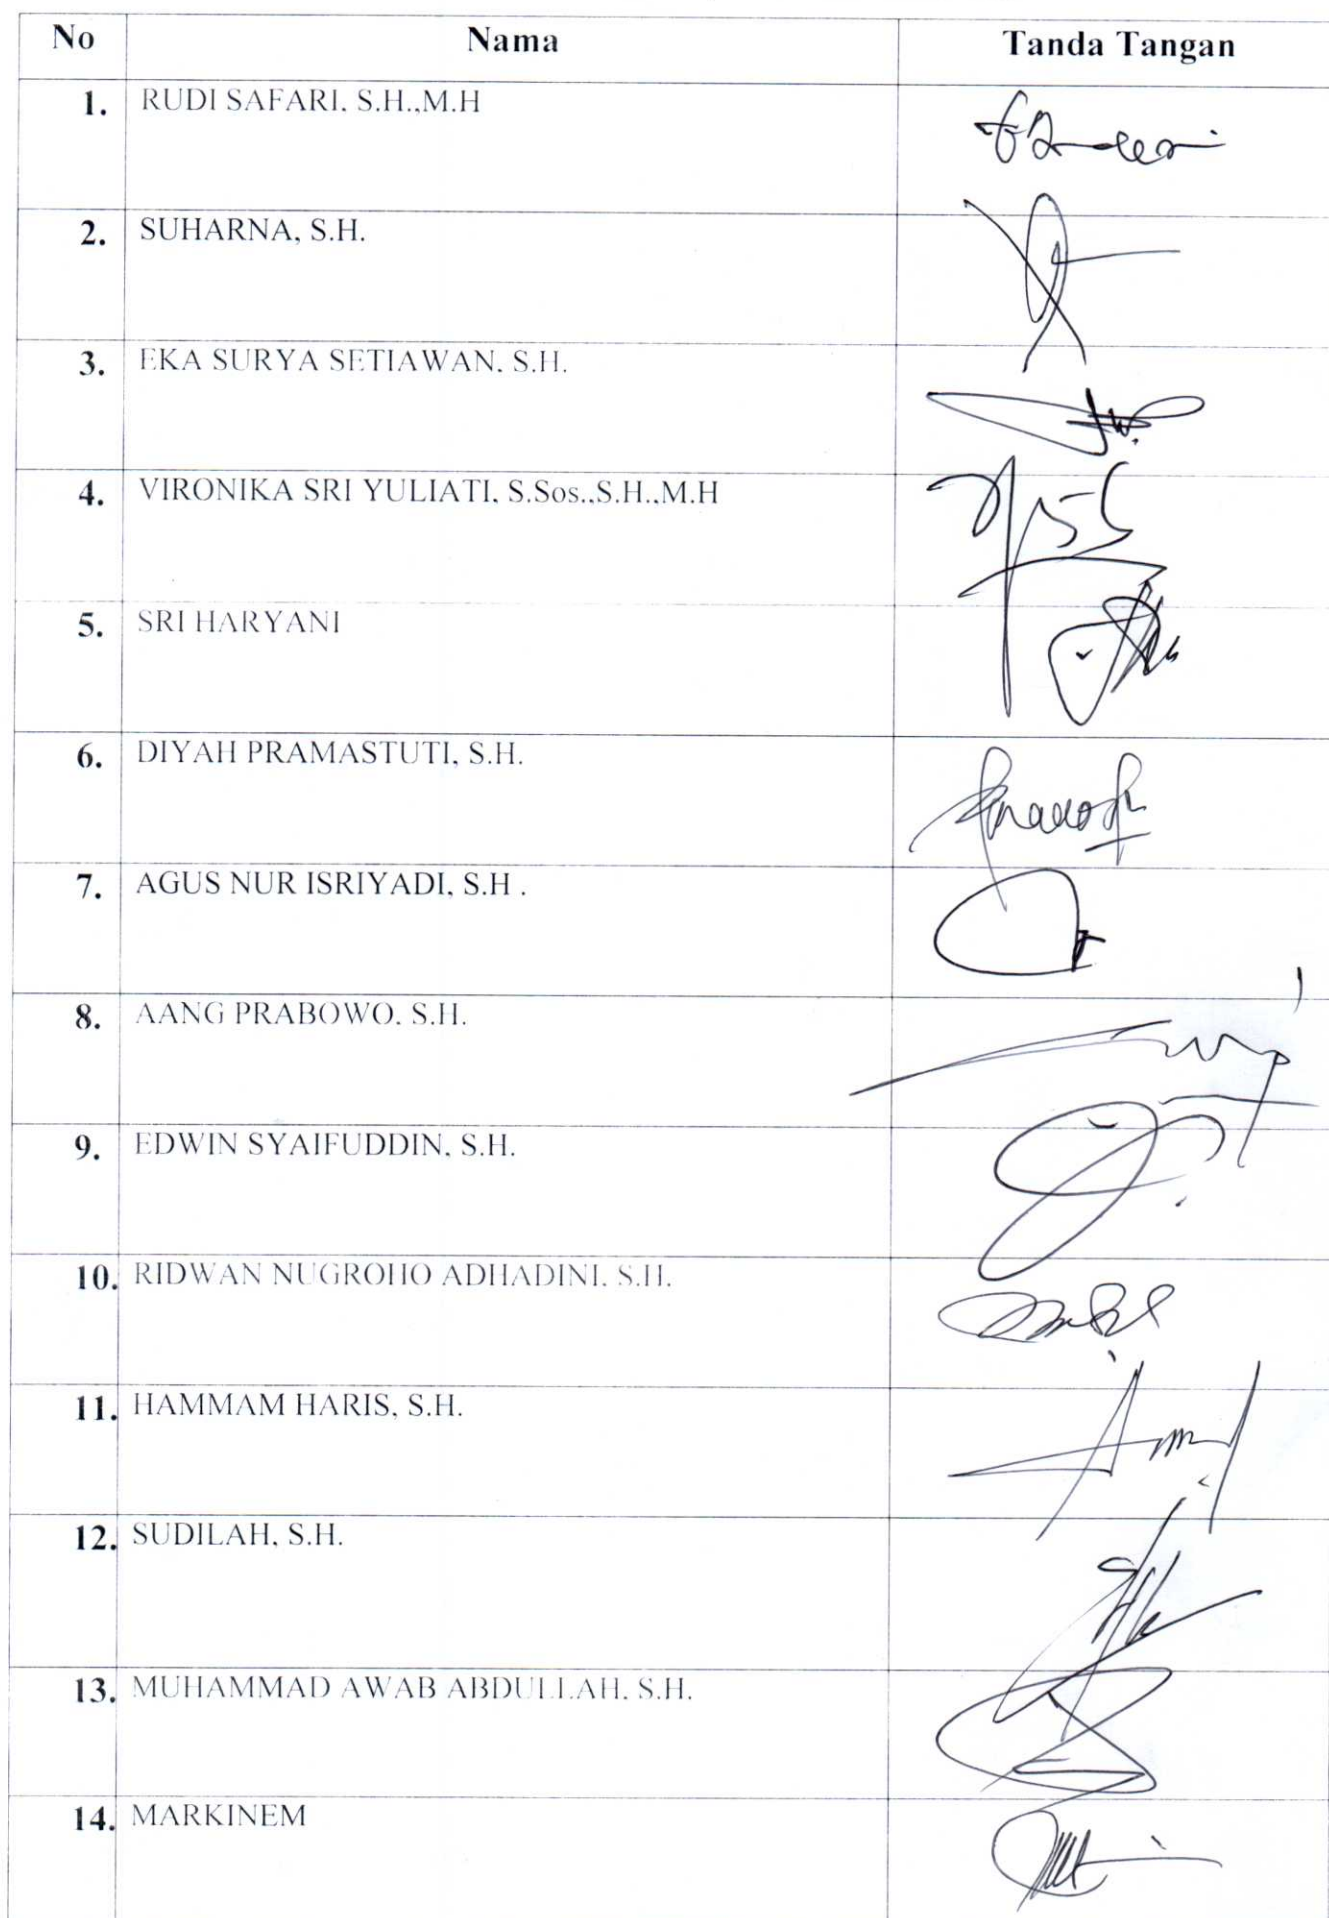 No Nama Tanda Tangan
1. RUDI SAFARI. S.H.,M.H
2. SUHARNA, S.H.
3. EKA SURYA SETIAWAN. S.H.
4. VIRONIKA SRI YULIATI, S.Sos.,S.H.,M.H
5. SRI HARYANI
6. DIYAH PRAMASTUTI, S.H.
7. AGUS NUR ISRIYADI, S.H .
8. AANG PRABOWO. S.H.
9. EDWIN SYAIFUDDIN, S.H.
10. RIDWAN NUGROHO ADHADINI. S.H.
11. HAMMAM HARIS, S.H.
12. SUDILAH, S.H.
13. MUHAMMAD AWAB ABDULLAH. S.H.
14. MARKINEM